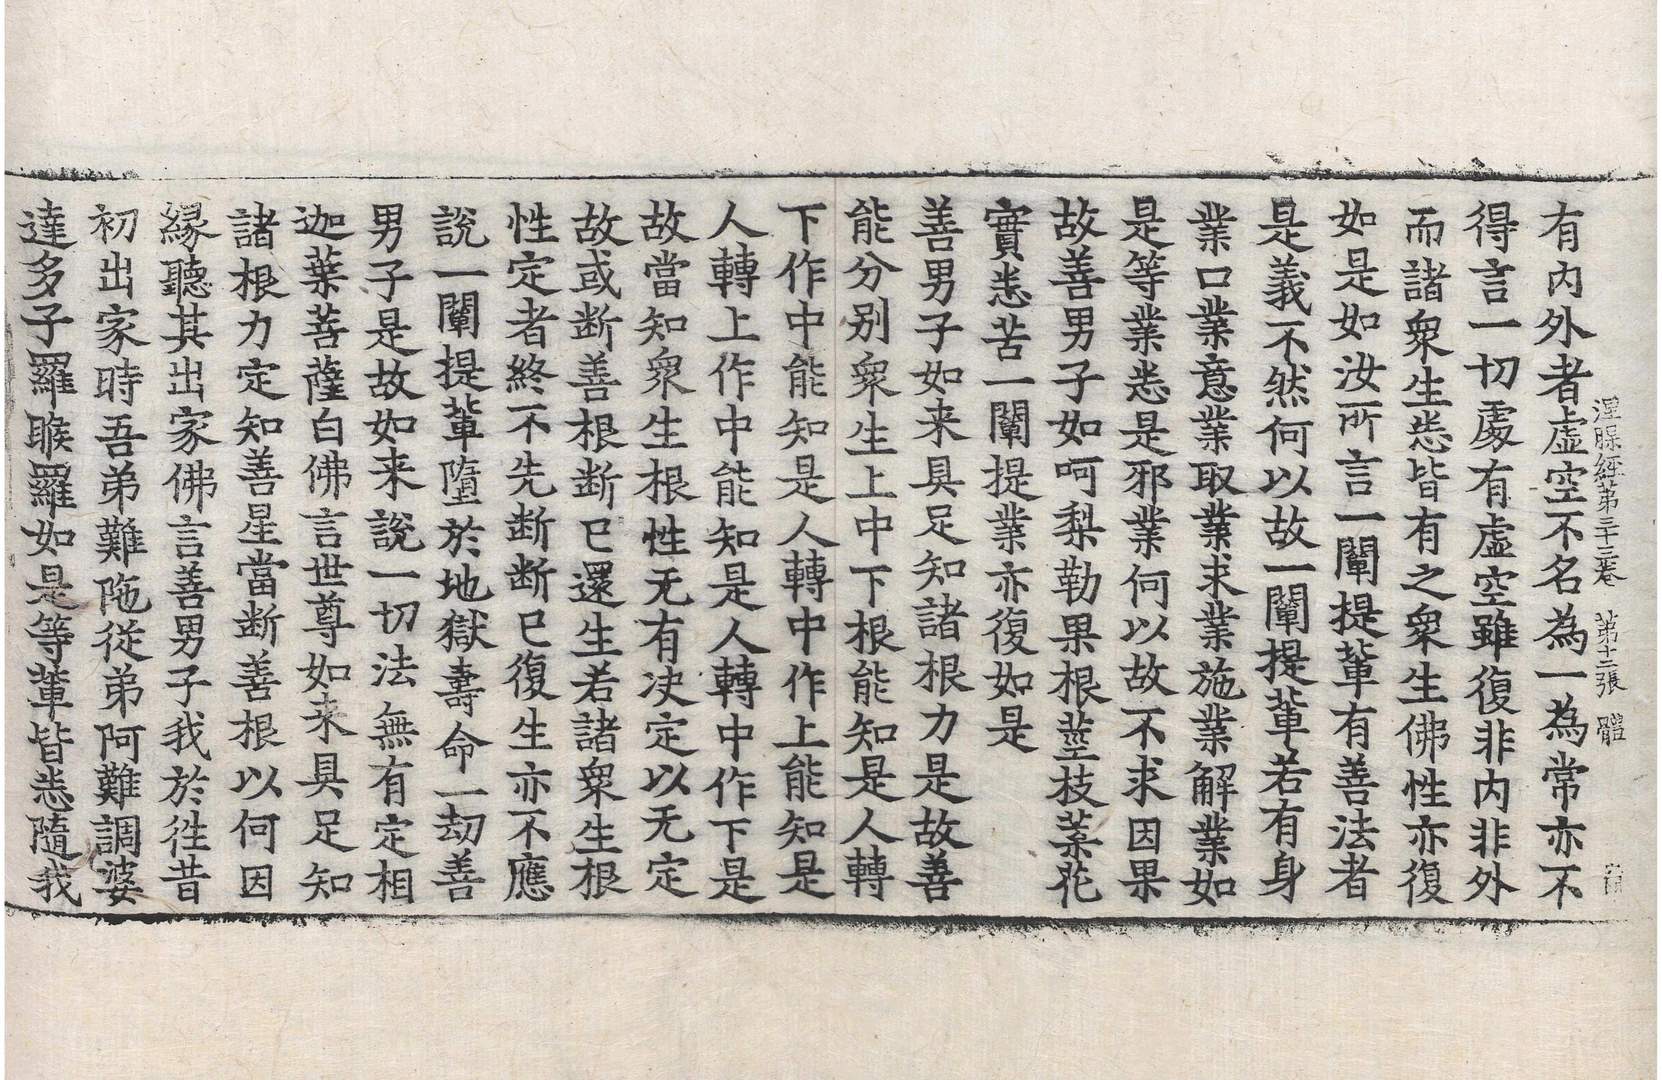 涅槃經第三十三卷 第十二張 體
有內外者虛空不名為一為常亦不
得言一切處有虛空雖復非內非外
而諸衆生悉皆有之衆生佛性亦復
如是如汝所言一闡提輩有善法者
是義不然何以故一闡提輩若有身
業口業意業取業求業施業解業如
是等業悉是邪業何以故不求因果
故善男子如呵梨勒果根莖枝葉花
實悉苦一闡提業亦復如是
善男子如来具足知諸根力是故善
能分别衆生上中下根能知是人轉
下作中能知是人轉中作上能知是
人轉上作中能知是人轉中作下是
故當知衆生根性无有决定以无定
故或断善根断已還生若諸衆生根
性定者終不先断断已復生亦不應
說一闡提輩墮於地獄壽命一劫善
男子是故如来說一切法無有定相
迦葉菩薩白佛言世尊如来具足知
諸根力定知善星當断善根以何因
縁聽其出家佛言善男子我於往昔
初出家時吾弟難陁從弟阿難調婆
達多子羅睺羅如是等輩皆悉隨我